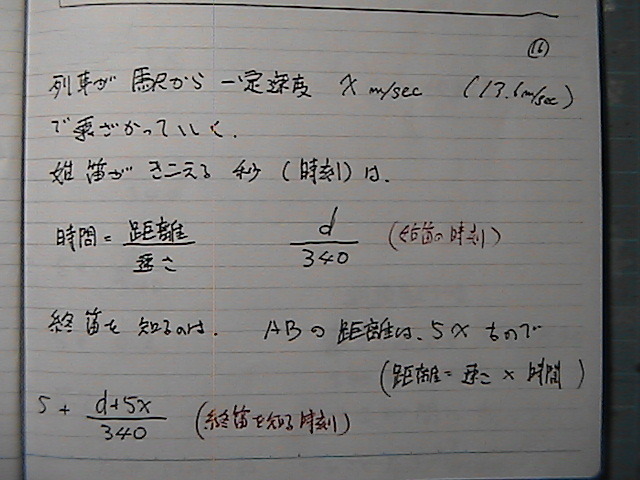 ⑯
列車が 駅から 一定速度 x m/sec (13.6m/sec)
で遠ざかっていく.
始笛が きこえる 秒 (時刻) は.
時間 = 距離/速さ d/340 (始笛の時刻)
終笛を 知るのは. ABの 距離は、5x なので
(距離 = 速さ × 時間)
5 + d+5x/340 (終笛を知る時刻)